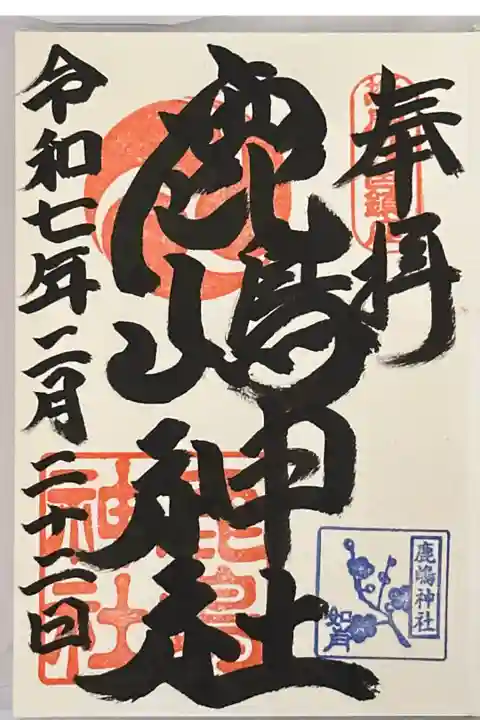 奉拝
鹿嶋神社
令和七年二月二十二日
鹿島
神社
鹿嶋神社
如月